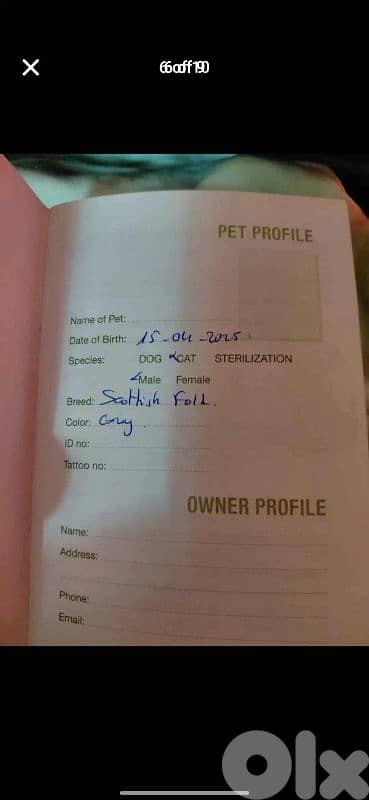 PET PROFILE
Name of Pet:
Date of Birth: 15-04-2025
Species: DOG CAT STERILIZATION
Male Female
Breed: Scottish Fold.
Color: Gray.
ID no:
Tattoo no:
OWNER PROFILE
Name:
Address:
Phone:
Email:
olx